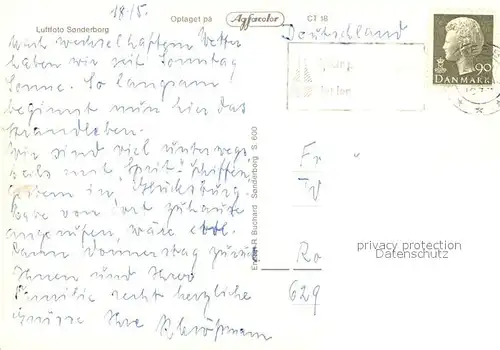 18/5.
Luftfoto Sønderborg
Optaget på Agfacolor CT 18
Deutschland
90
DANMARK
Nach wechselhaftem Wetter
haben wir seit Sonntag
Sonne. So langsam
beginnt nun hier das
Strandleben.
Wir sind viel unterwegs,
teils mit "Sprit"-Schiffen,
gestern in Glücksburg.
Habe von dort zuhause
angerufen, wäre evtl.
dann Donnerstag zurück
Ihnen und Ihrer
Familie recht herzliche
Grüsse Ihre
Eneret R. Buchard Sønderborg S. 600
Fr
W
Ro
629
privacy protection
Datenschutz